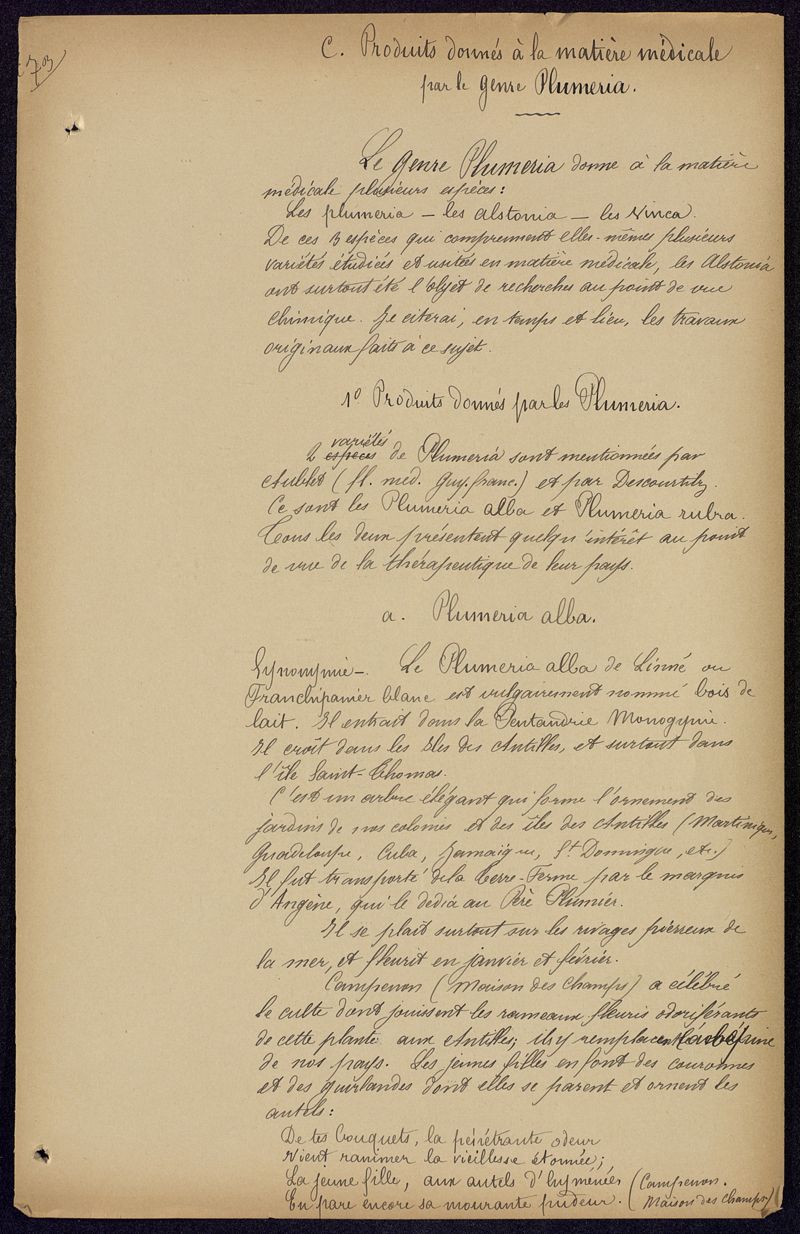 73
C. Produits donnés à la matière médicale
par le genre Plumeria.
Le genre Plumeria donne à la matière
médicale plusieurs espèces :
Les plumeria – les alstonia – les vinca.
De ces 3 espèces qui comprennent elles-mêmes plusieurs
variétés étudiées et usitées en matière médicale, les Alstonia
ont surtout été l'objet de recherches au point de vue
chimique. Je citerai, en temps et lieu, les travaux
originaux faits à ce sujet.
1º Produits donnés par les Plumeria.
variétés
2 espèces de Plumeria sont mentionnées par
Aublet (fl. med. Guy. franc.) et par Descourtilz.
Ce sont les Plumeria alba et Plumeria rubra.
Tous les deux présentent quelqu'intérêt au point
de vue de la thérapeutique de leur pays.
a. Plumeria alba.
Synonymie –. Le Plumeria alba de Linné ou
Franchipanier blanc est vulgairement nommé bois de
lait. Il entrait dans la Pentandrie Monogynie.
Il croît dans les Iles des Antilles, et surtout dans
l'île Saint-Thomas.
C'est un arbre élégant qui forme l'ornement des
jardins de nos colonies et des îles des Antilles (Martinique,
Guadeloupe, Cuba, Jamaïque, St Domingue, etc.)
Il fut transporté de la Terre-Ferme par le marquis
d'Angène, qui le dédia au Père Plumier.
Il se plait surtout sur les rivages pierreux de
la mer, et fleurit en janvier et février.
Campenon (Maison des Champs) a célébré
le culte dont jouissent les rameaux fleuris odoriférants
de cette plante aux Antilles; ils y remplacent l'aubépine
de nos pays. Les jeunes filles en font des couronnes
et des guirlandes dont elles se parent et ornent les
autels :
De tes bouquets, la pénétrante odeur
Vient ranimer la vieillesse étonnée;
La jeune fille, aux autels d'hyménées (Campenon.
En pare encore sa mourante pudeur. (Maison des Champs)